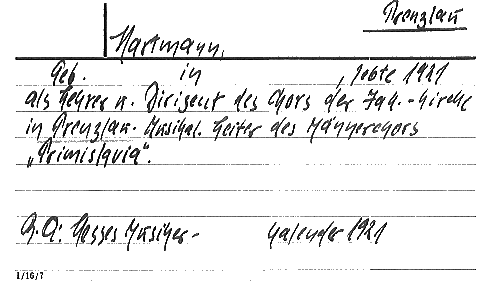 Prenzlau
Hartmann,
Geb. in , lebte 1921
als Lehrer u. Dirigent des Chors der Jak.-Kirche
in Prenzlau. Musikal. Leiter des Männerchors
„Primislavia“.
Q.A: Hesses Musiker- Kalender 1921
1/16/7